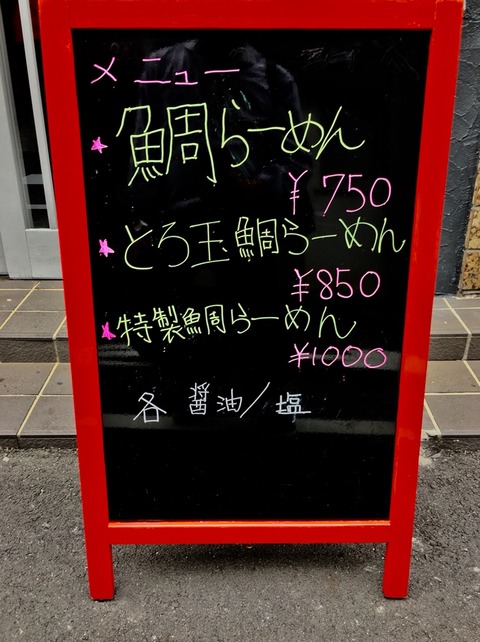 メニュー
★鯛らーめん
¥750
★とろ玉鯛らーめん
¥850
★特製鯛らーめん
¥1000
各 醤油/塩